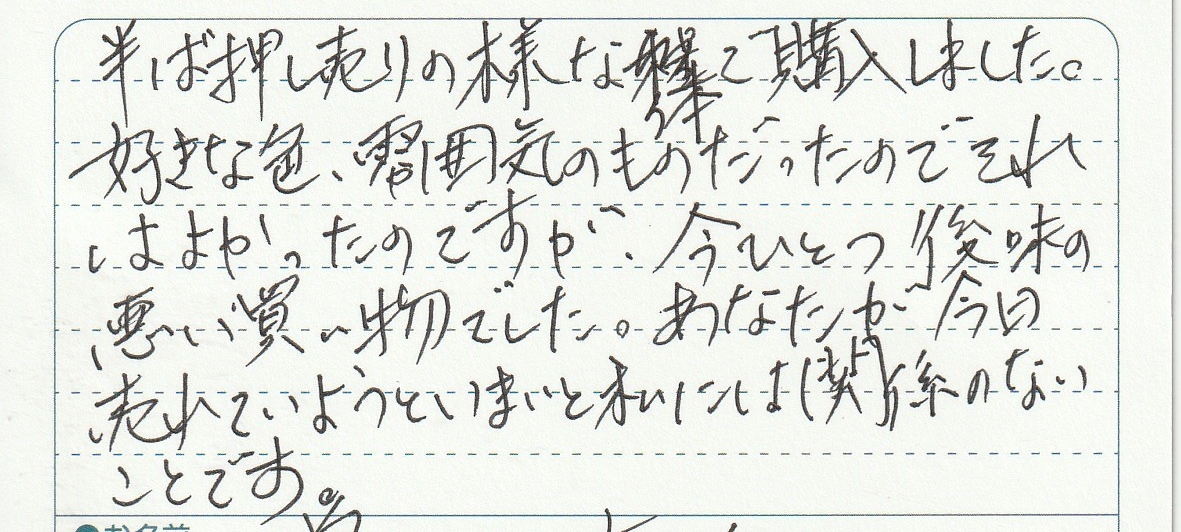 半ば押し売りの様な体で購入しました。
好きな色、雰囲気のものだったのでそれ
はよかったのですが、今ひとつ後味の
悪い買い物でした。あなたが今日
売れていようといまいと私には関係のない
ことです。
●お名前